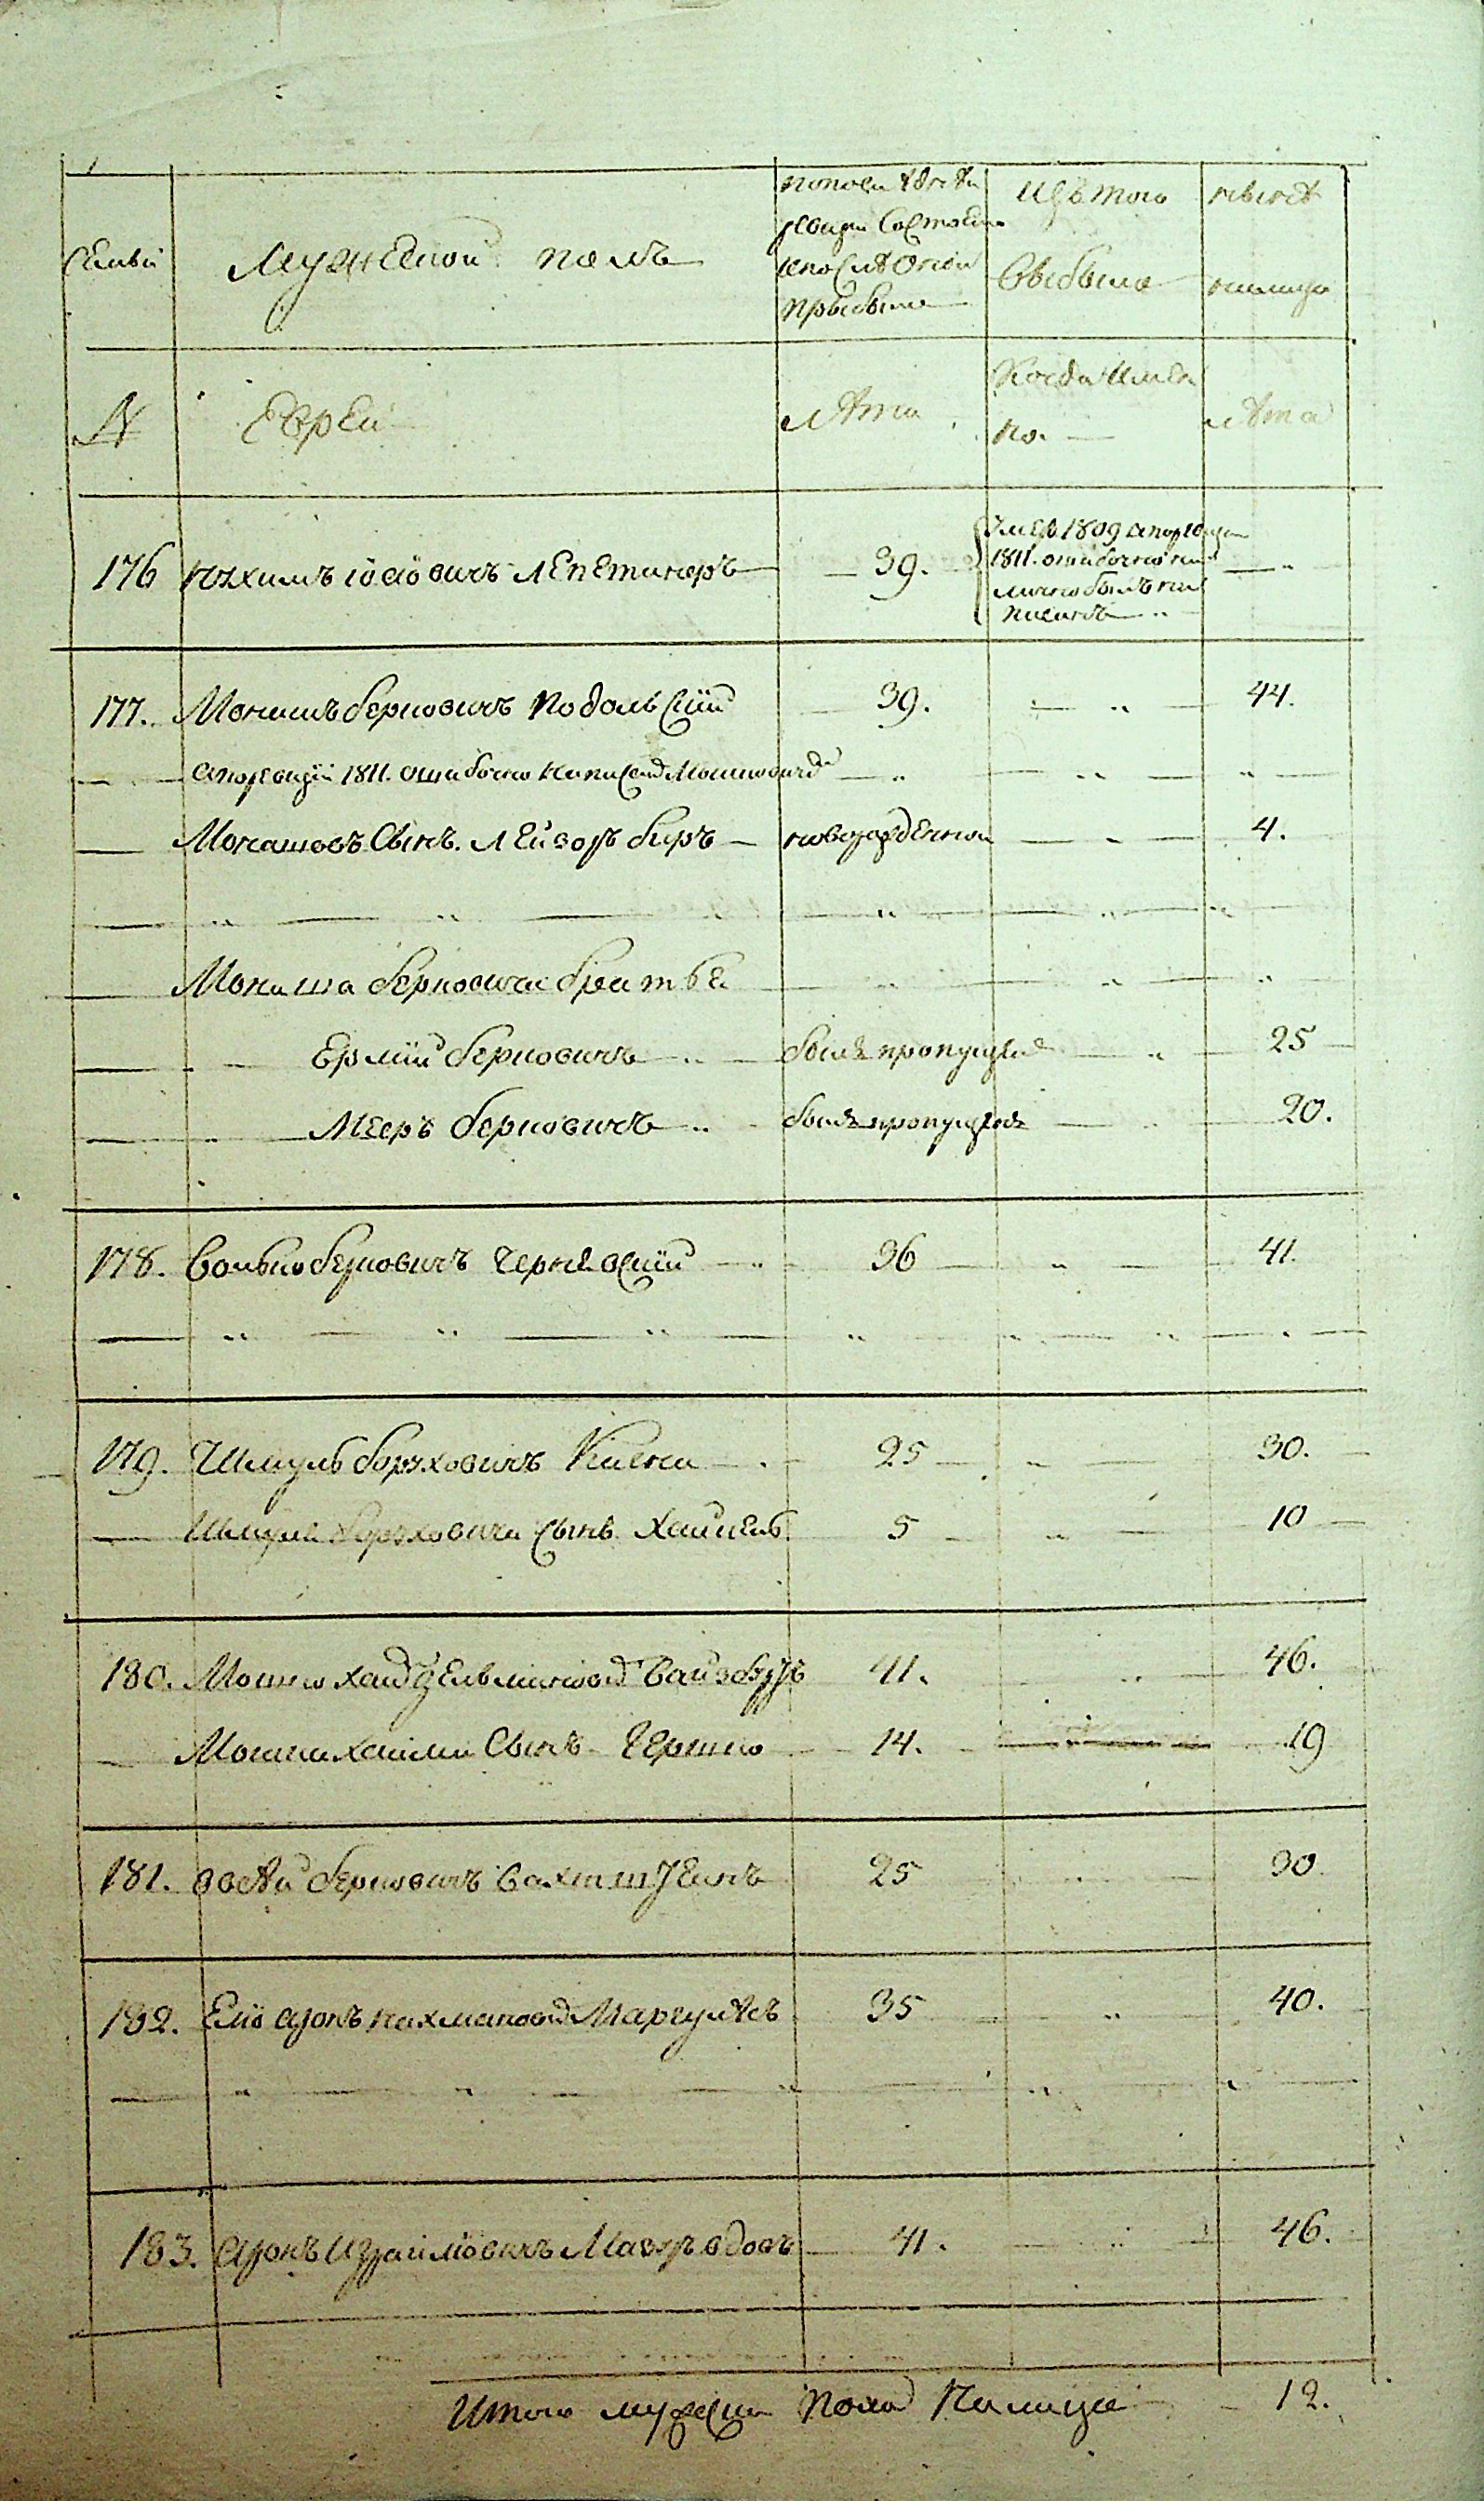 Семьи
Мужеской полъ
По последней ревизии состояло и после оной прибыло
Изъ того выбыло
ныне на лицо
№
Евреи
лѣта
Когда именно
лѣта
176 Нухимъ Іосіовичъ Лепетикеръ — 39. Умер. 1809 а по ревизіи 1811. ошибочно на лицо былъ написанъ — "
177. Монашъ берковичъ Подольскій — 39. — " — 44.
— а по ревизіи 1811. ошибочно написанъ Мошковичъ — "
— Монашовъ Сынъ Лейзоръ беръ — новорожденной — " — 4.
— Монаша берковича братья
— Ерлій берковичъ — " — былъ пропущенъ — " — 25
— Мееръ берковичъ — " былъ пропущенъ — 20.
178. Волько берковичъ Чернявскій — " 36 — " — 41.
179. Шмуль боруховичъ Киена — 25 — " — 30.
— Шмуля боруховича Сынъ Хаскель 5 — " — 10
180. Мошко хаимъ Зельмановичъ Вайзбурдъ 41. " 46.
— Мошка хаима Сынъ Гершко — 14. — 19
181. Овсѣй берковичъ Вахтштейнъ 25 30
182. Еліо аронъ нахмановичъ Маргулѣсъ 35 — " 40.
183. аронъ Израилѣовичъ Мазуръ вдовъ — 41. — " 46.
Итого мужеска Пола На лицо — 12.